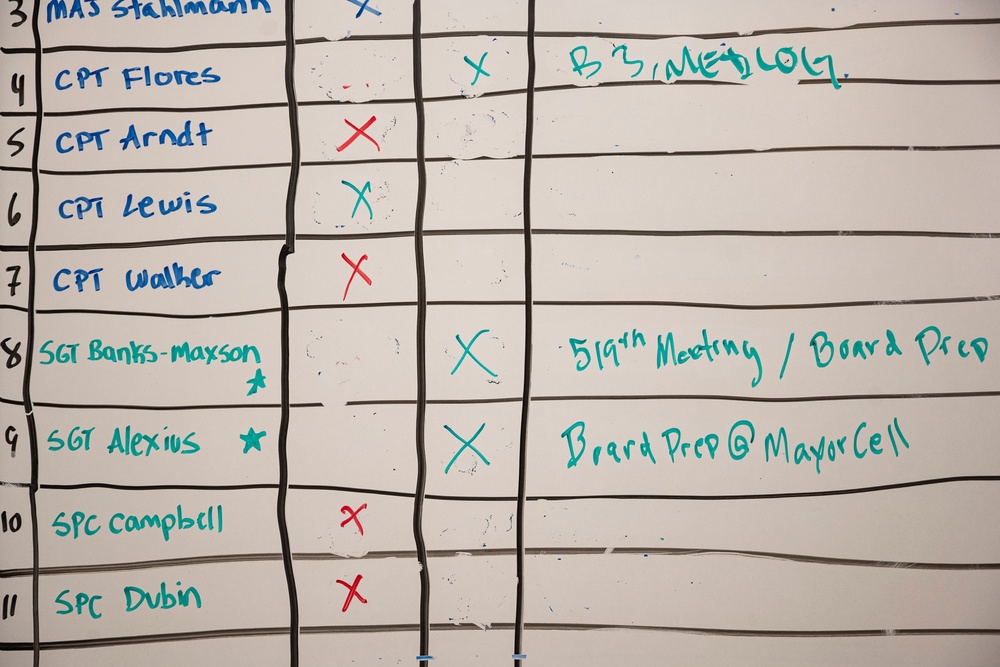 3 MAJ Stahlmann X
4 CPT Flores X B3, MEDLOG.
5 CPT Arndt X
6 CPT Lewis X
7 CPT Walker X
8 SGT Banks-Maxson ★ X 519th Meeting / Board Prep
9 SGT Alexius ★ X Board Prep @ Mayor Cell
10 SPC Campbell X
11 SPC Dubin X